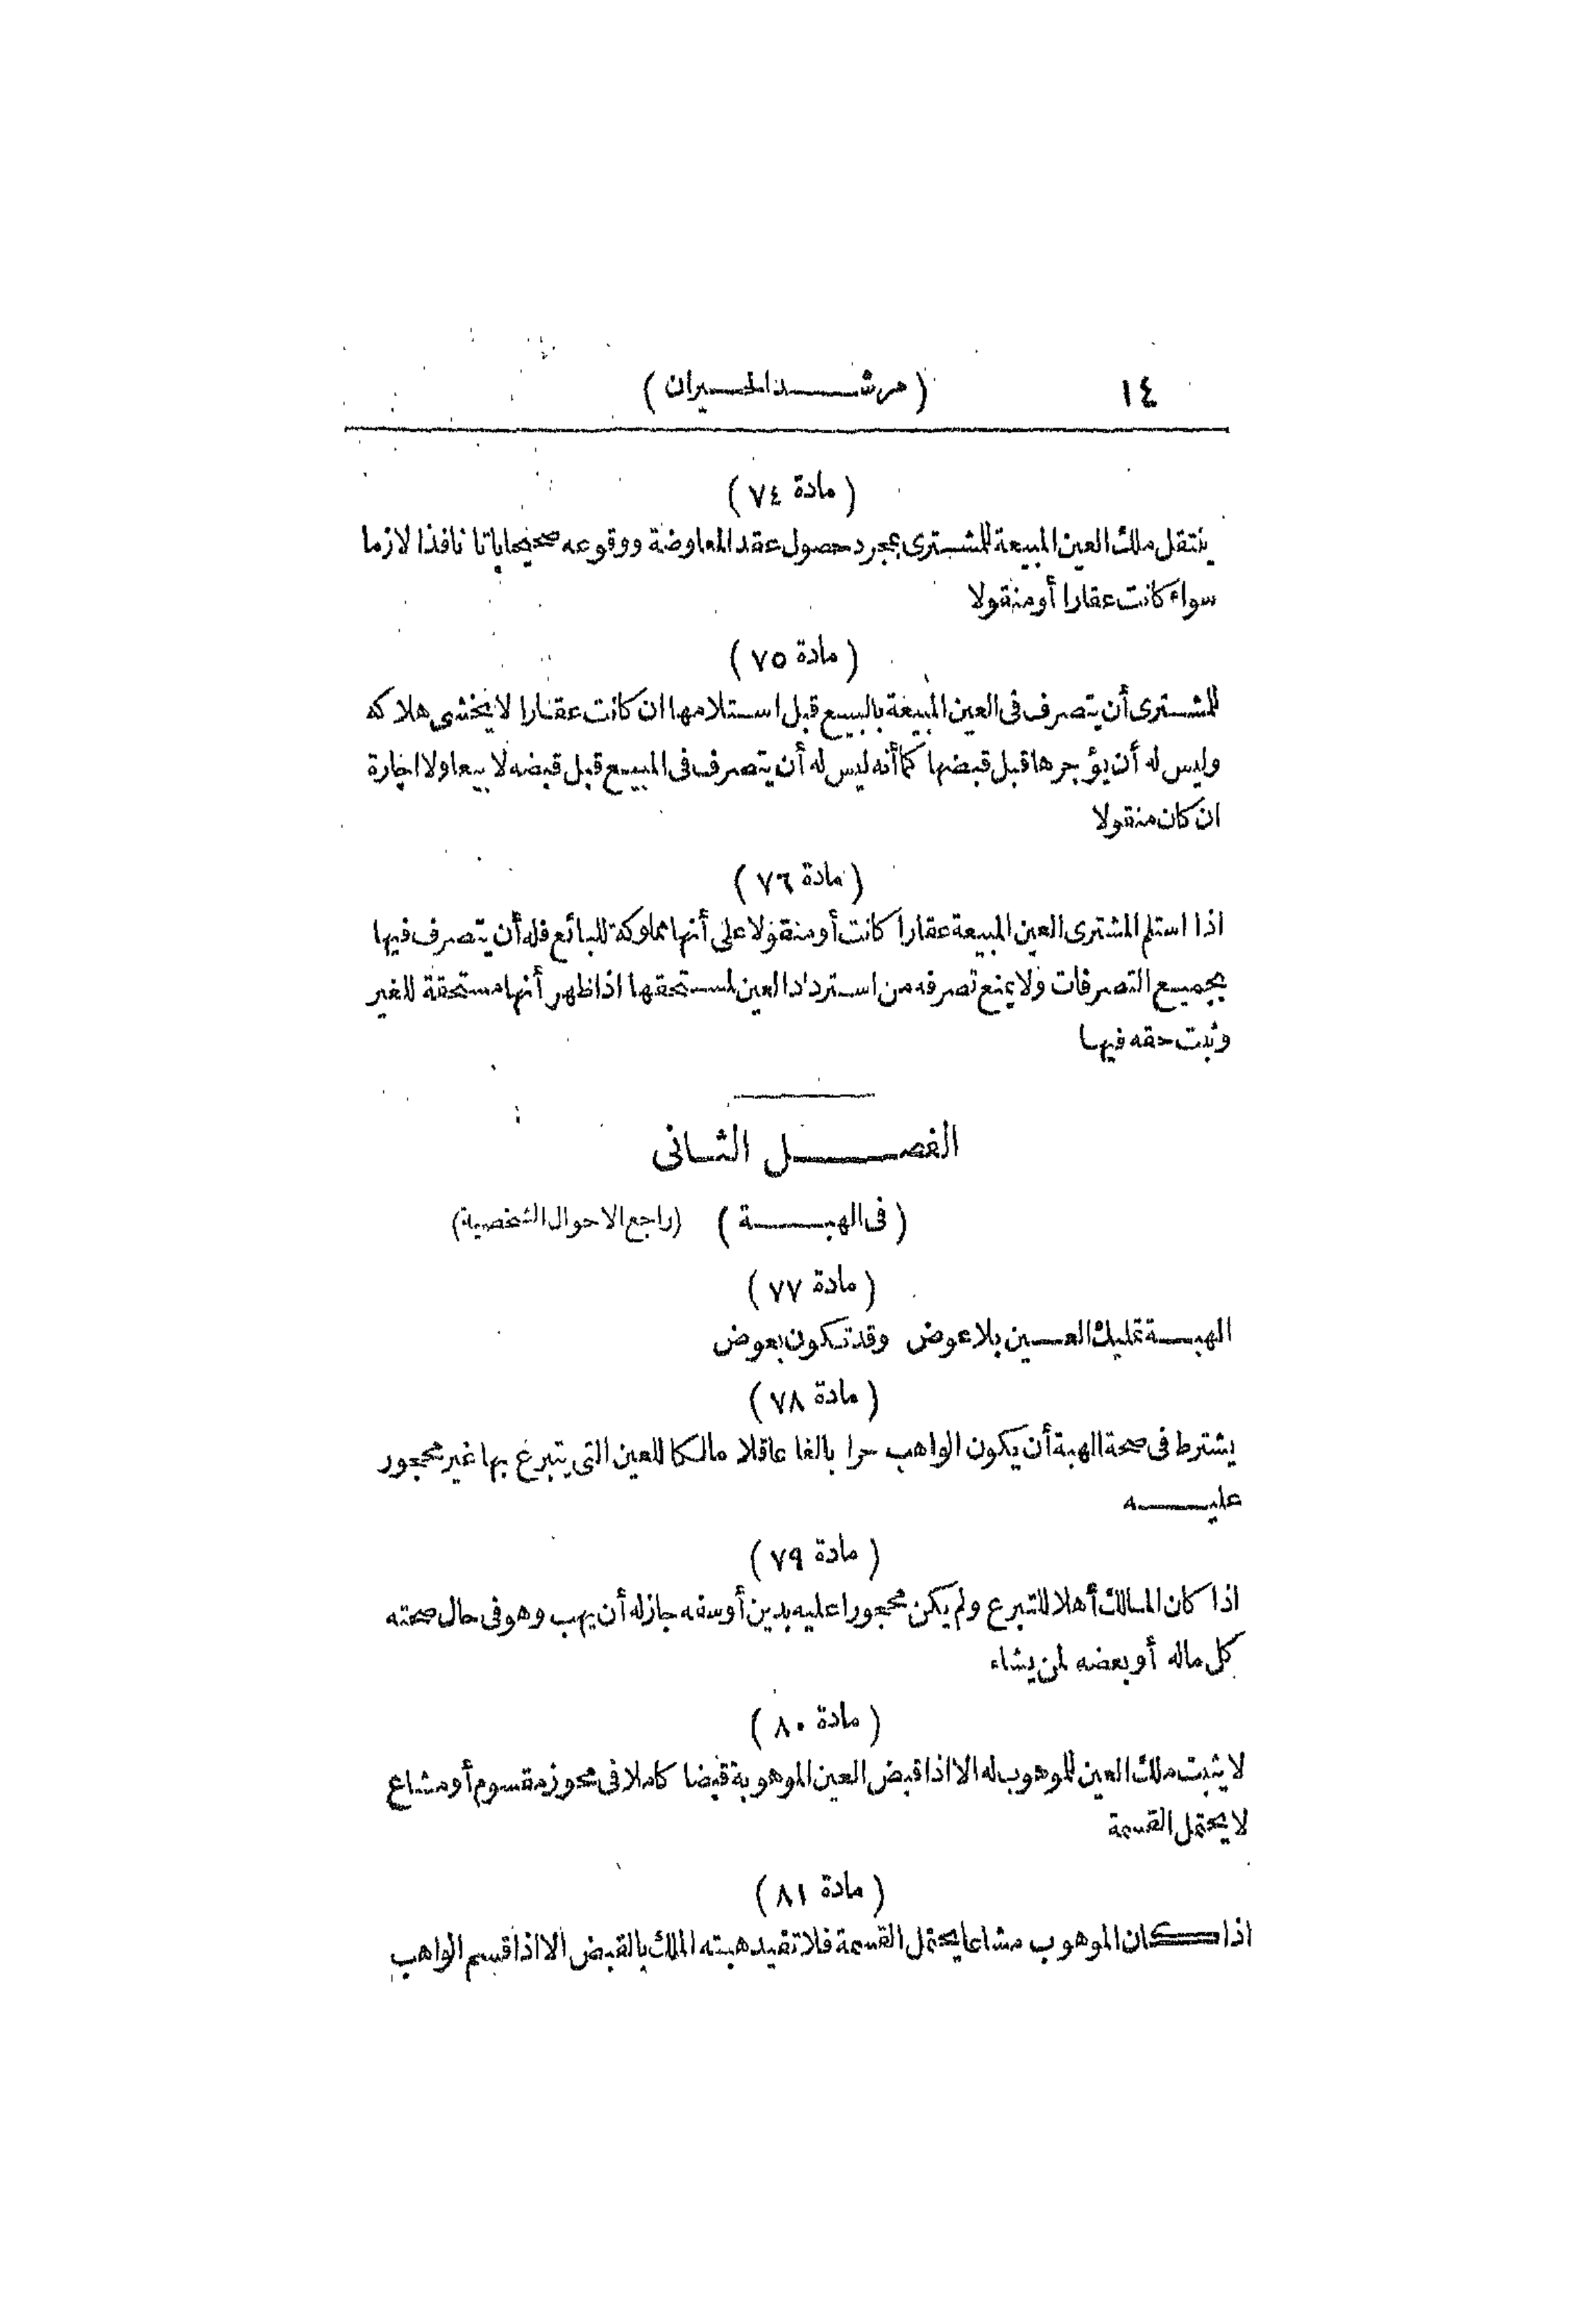 ١٤ (مرشد الحيران)
(مادة ٧٤)
ينتقل ملك العين المبيعة للمشترى بمجرد حصول عقد المعاوضة ووقوعه صحيحا باتا نافذا لازما
سواء كانت عقارا أو منقولا
(مادة ٧٥)
للمشترى أن يتصرف فى العين المبيعة بالبيع قبل استلامها ان كانت عقارا لا يخشى هلاكه
وليس له أن يؤجرها قبل قبضها كما أنه ليس له أن يتصرف فى المبيع قبل قبضه لا بيعا ولا اجارة
ان كان منقولا
(مادة ٧٦)
اذا استلم المشترى العين المبيعة عقارا كانت أو منقولا على أنها مملوكة للبائع فله أن يتصرف فيها
بجميع التصرفات ولا يمنع تصرفه من استرداد العين لمستحقها اذا ظهر أنها مستحقة للغير
وثبت حقه فيها
الفصل الثانى
(فى الهبة) (راجع الاحوال الشخصية)
(مادة ٧٧)
الهبة تمليك العين بلا عوض وقد تكون بعوض
(مادة ٧٨)
يشترط فى صحة الهبة أن يكون الواهب حرا بالغا عاقلا مالكا للعين التى يتبرع بها غير محجور
عليه
(مادة ٧٩)
اذا كان المالك أهلا للتبرع ولم يكن محجورا عليه بدين أو سفه جاز له أن يهب وهو فى حال صحته
كل ماله أو بعضه لمن يشاء
(مادة ٨٠)
لا يثبت ملك العين للموهوب له الا اذا قبض العين الموهوبة قبضا كاملا فى محوز مقسوم أو مشاع
لا يحتمل القسمة
(مادة ٨١)
اذا كان الموهوب مشاعا يحتمل القسمة فلا تفيد هبته الملك بالقبض الا اذا قسم الواهب